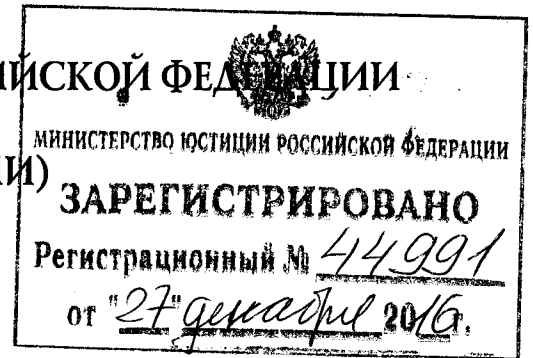 ЙСКОЙ ФЕДЕРАЦИИ
МИНИСТЕРСТВО ЮСТИЦИИ РОССИЙСКОЙ ФЕДЕРАЦИИ
И)
ЗАРЕГИСТРИРОВАНО
Регистрационный № 44991
от "27" декабря 2016г.